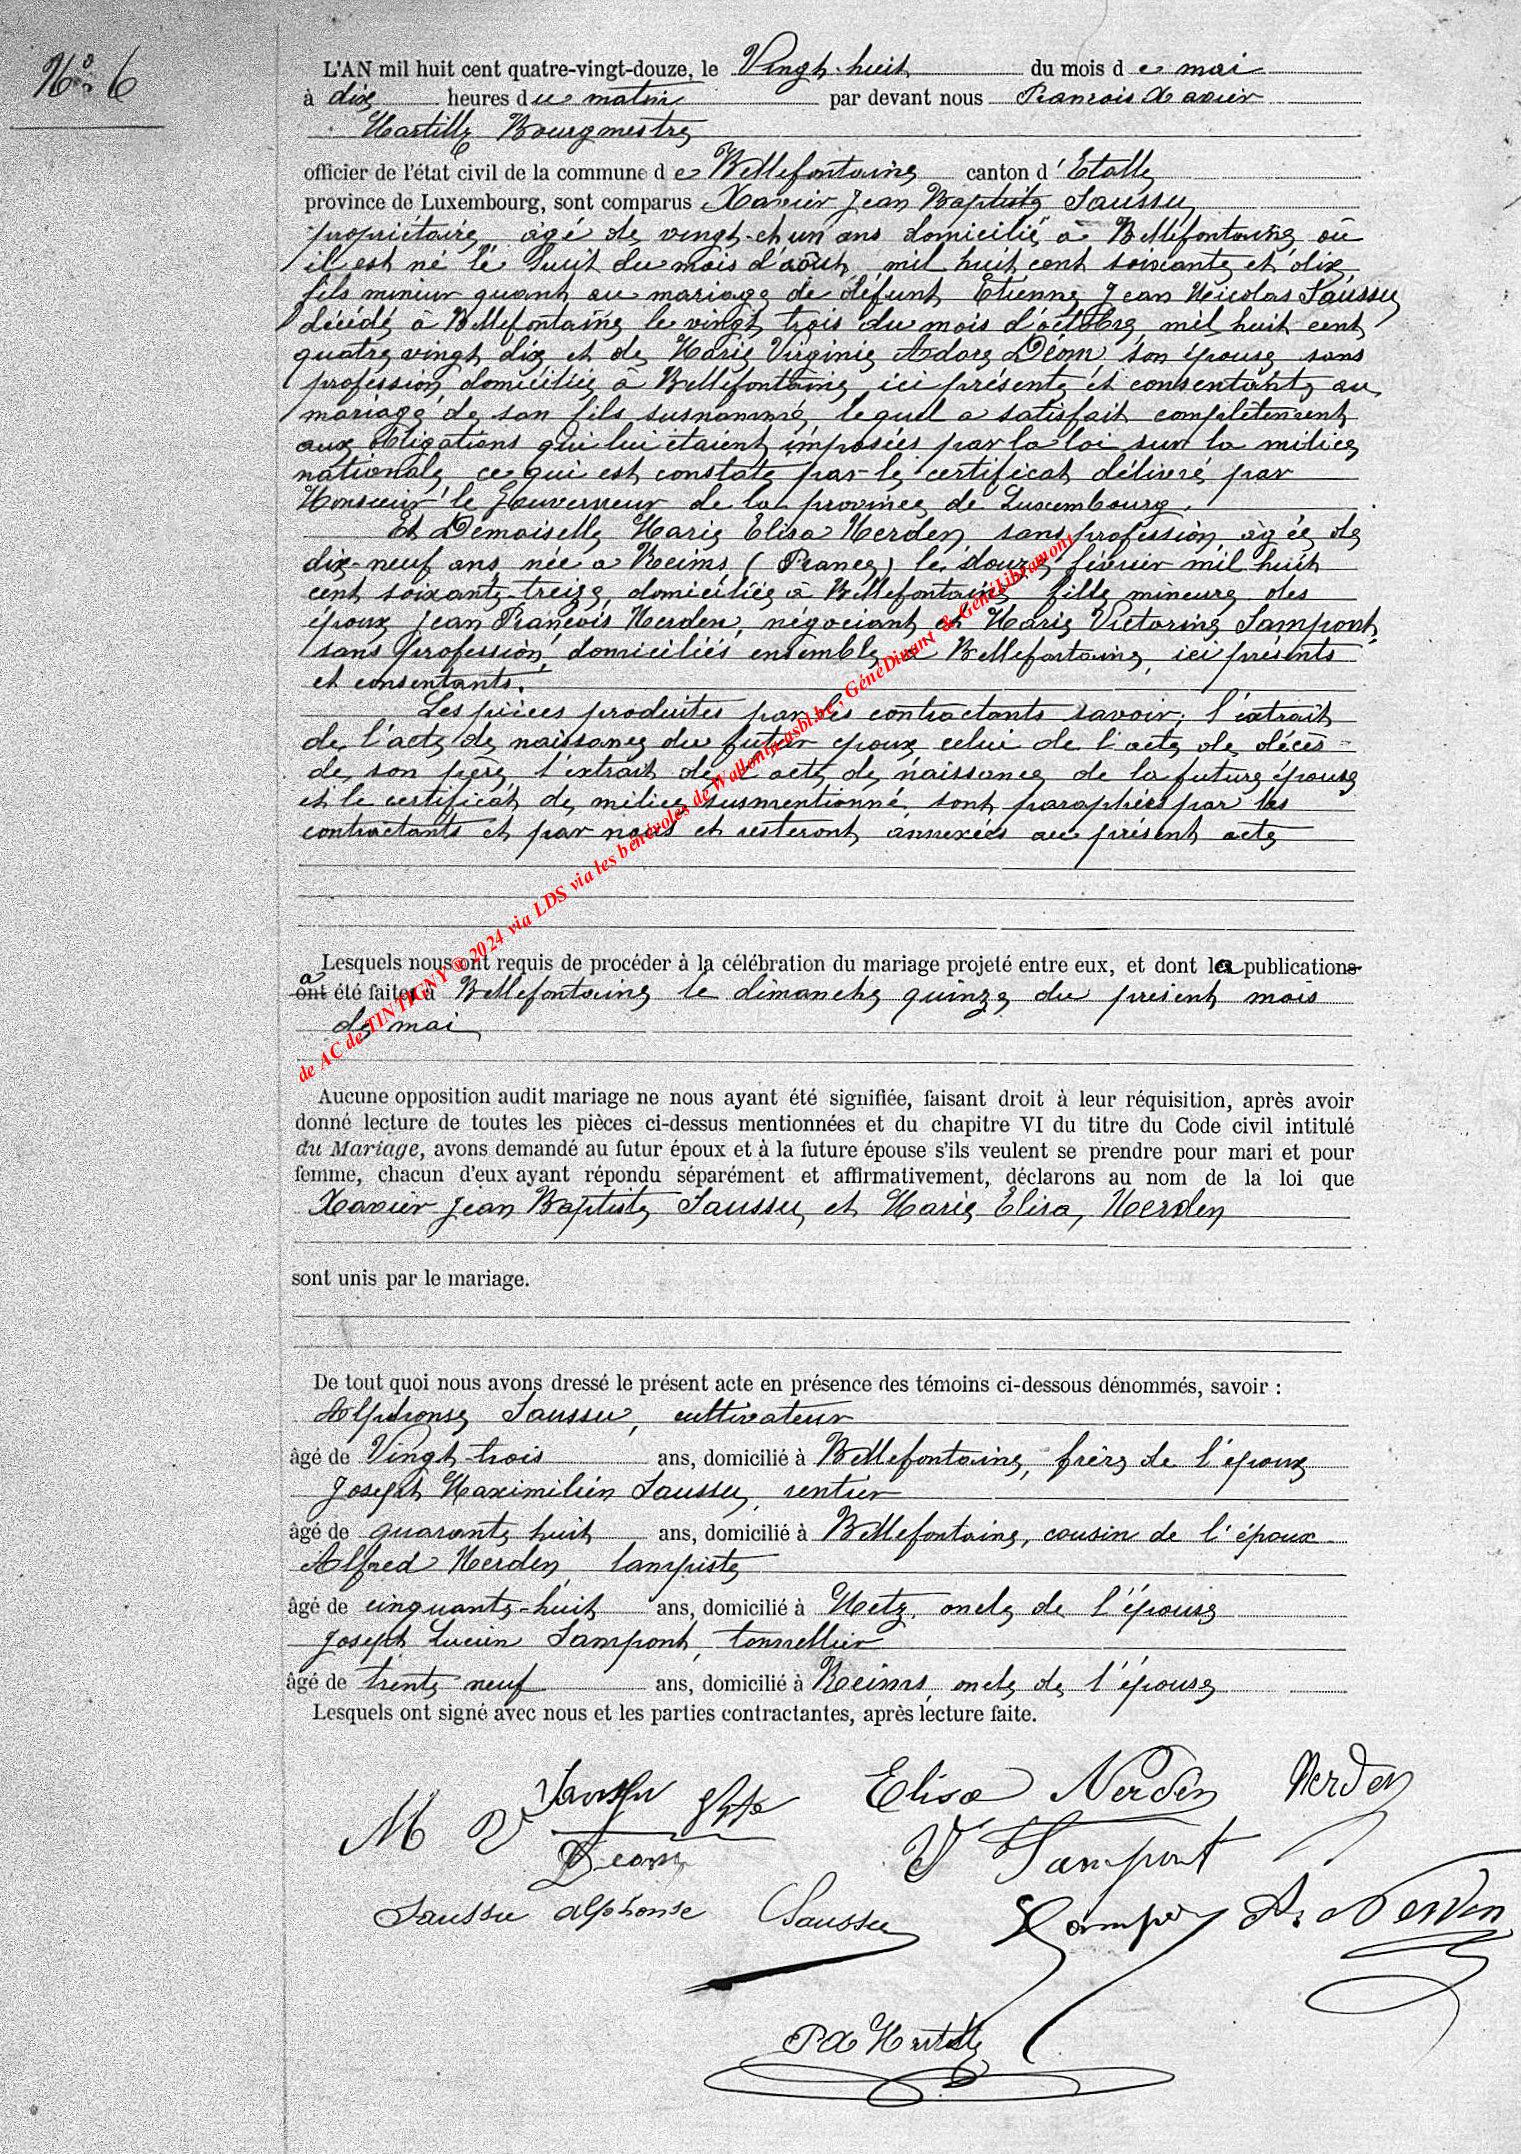 N° 6
L'AN mil huit cent quatre-vingt-douze, le Vingt-huit du mois d e mai
à dix heures d u matin par devant nous François Xavier
Hartille Bourgmestre
officier de l'état civil de la commune d e Bellefontaine canton d' Etalle
province de Luxembourg, sont comparus Xavier Jean Baptiste Saussu
propriétaire, âgé de vingt-et un ans domicilié à Bellefontaine où
il est né le huit du mois d'août mil huit cent soixante et dix,
fils mineur quant au mariage de défunt Etienne Jean Nicolas Saussu
décédé à Bellefontaine le vingt trois du mois d'octobre mil huit cent
quatre vingt dix et de Marie Virginie Adore Déom son épouse sans
profession, domiciliée à Bellefontaine, ici présente et consentante au
mariage de son fils susnommé, lequel a satisfait complètement
aux obligations que lui étaient imposées par la loi sur la milice
nationale, ce qui est constaté par le certificat délivré par
Monsieur le Gouverneur de la province de Luxembourg.
Et Demoiselle Marie Elisa Nerden, sans profession, âgée de
dix-neuf ans, née à Reims (France) le douze février mil huit
cent soixante-treize, domiciliée à Bellefontaine fille mineure des
époux Jean François Nerden, négociant et Marie Victorine Sampont,
sans profession, domiciliés ensemble à Bellefontaine, ici présents
et consentants.
Les pièces produites par les contractants savoir, l'extrait
de l'acte de naissance du futur époux celui de l'acte de décès
de son père, l'extrait de l'acte de naissance de la future épouse
et le certificat de milice susmentionné sont paraphées par les
contractants et par nous et resteront annexées au présent acte
Lesquels nous ont requis de procéder à la célébration du mariage projeté entre eux, et dont la publications
a
ont été faites à Bellefontaine le dimanche quinze du présent mois
de mai
Aucune opposition audit mariage ne nous ayant été signifiée, faisant droit à leur réquisition, après avoir
donné lecture de toutes les pièces ci-dessus mentionnées et du chapitre VI du titre du Code civil intitulé
du Mariage, avons demandé au futur époux et à la future épouse s'ils veulent se prendre pour mari et pour
femme, chacun d'eux ayant répondu séparément et affirmativement, déclarons au nom de la loi que
Xavier Jean Baptiste Saussu et Marie Elisa, Nerden
sont unis par le mariage.
De tout quoi nous avons dressé le présent acte en présence des témoins ci-dessous dénommés, savoir :
Alphonse Saussu, cultivateur
âgé de Vingt-trois ans, domicilié à Bellefontaine, frère de l'époux
Joseph Maximilien Saussu, rentier
âgé de quarante huit ans, domicilié à Bellefontaine, cousin de l'époux
Alfred Nerden, lampiste
âgé de cinquante-huit ans, domicilié à Metz, oncle de l'épouse
Joseph Lucien Sampont, tonnellier
âgé de trente neuf ans, domicilié à Reims, oncle de l'épouse
Lesquels ont signé avec nous et les parties contractantes, après lecture faite.
Saussu Elisa Nerden Nerden
M V Déom V Sampont
Saussu alphonse Saussu Sampont A. Nerden
FX Hartille
de AC de TINTIGNY ® 2024 via LDS via les bénévoles de Wallonia-asbl.be, GénéDinant & GénéLibramont